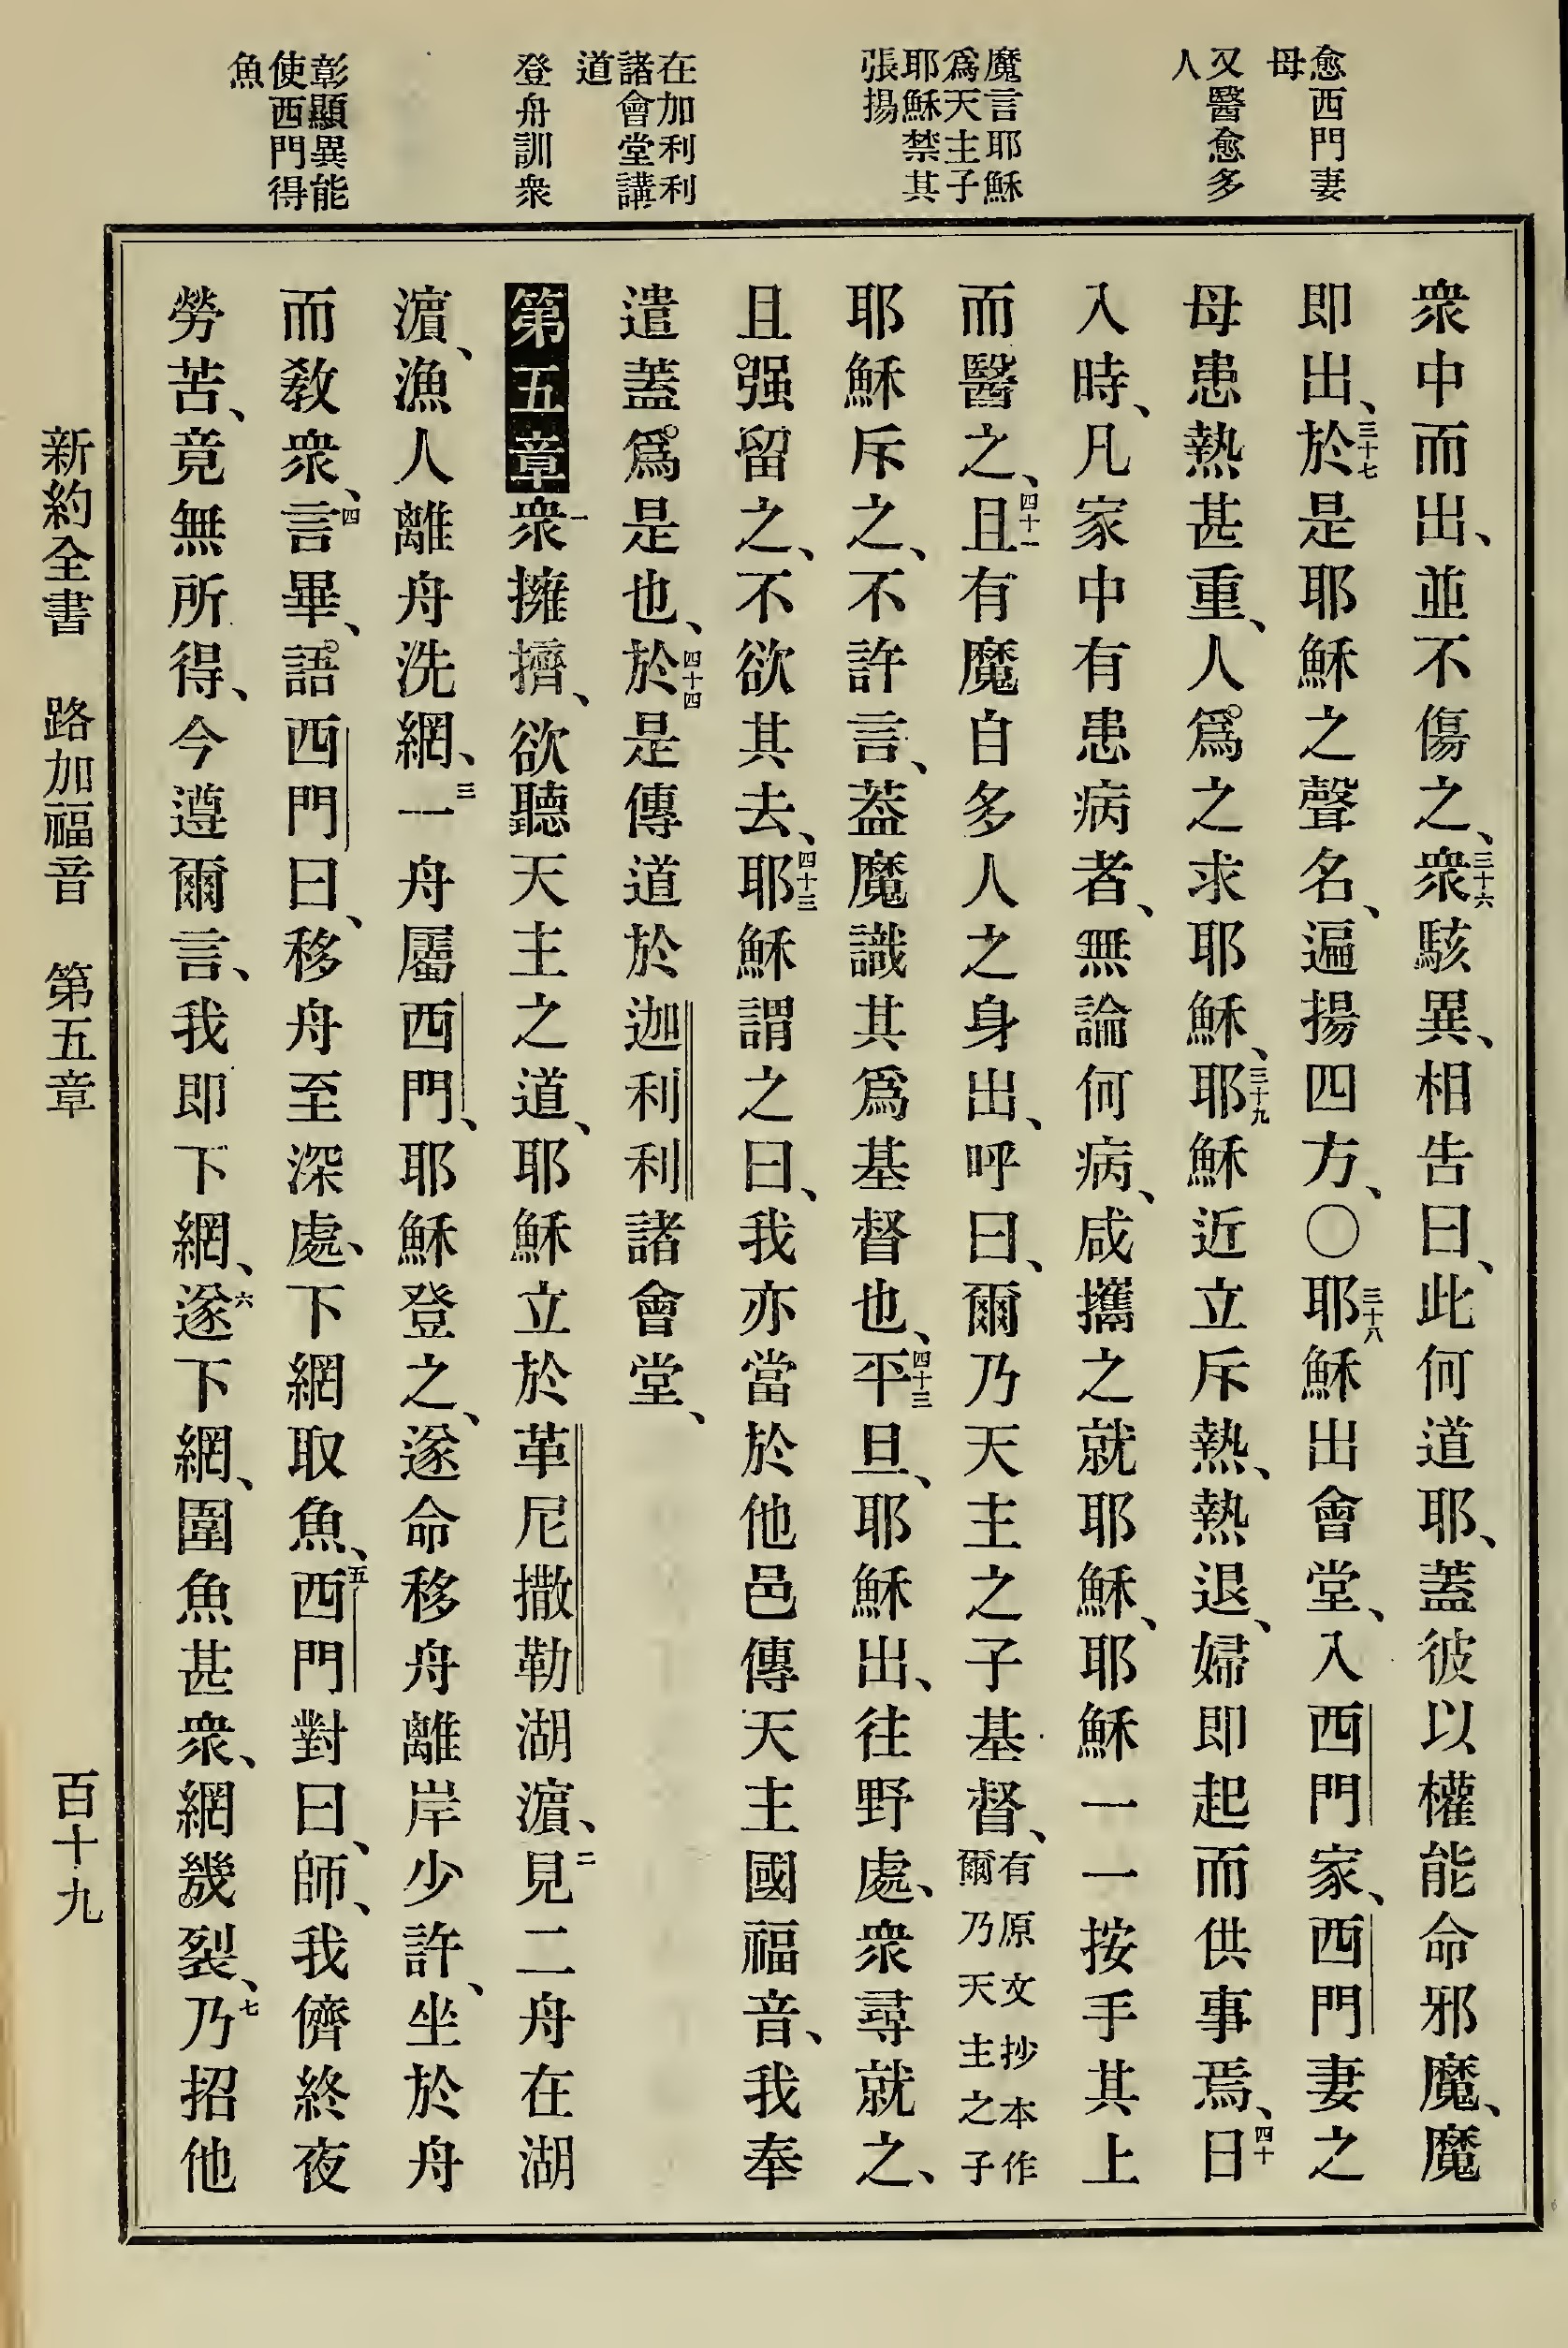 愈西門妻
母
又醫愈多
人
魔言耶穌
爲天主子
耶穌禁其
張揚
在加利利
諸會堂講
道
登舟訓衆
彰顯異能
使西門得
魚
衆中而出、並不傷之、三十六衆駭異、相告曰、此何道耶、蓋彼以權能命邪魔、魔
即出、三十七於是耶穌之聲名、遍揚四方、〇三十八耶穌出會堂、入西門家、西門妻之
母患熱甚重、人爲之求耶穌、三十九耶穌近立斥熱、熱退、婦即起而供事焉、四十日
入時、凡家中有患病者、無論何病、咸攜之就耶穌、耶穌一一按手其上
而醫之、四十一且有魔自多人之身出、呼曰、爾乃天主之子基督、有原文抄本作爾乃天主之子
耶穌斥之、不許言、蓋魔識其爲基督也、四十三平旦、耶穌出、往野處、衆尋就之、
且强留之、不欲其去、四十三耶穌謂之曰、我亦當於他邑傳天主國福音、我奉
遣蓋爲是也、四十四於是傳道於迦利利諸會堂、
第五章一衆擁擠、欲聽天主之道、耶穌立於革尼撒勒湖濵、二見二舟在湖
濵、漁人離舟洗網、三一舟屬西門、耶穌登之、遂命移舟離岸少許、坐於舟
而敎衆、四言畢、語西門曰、移舟至深處、下網取魚、五西門對曰、師、我儕終夜
勞苦、竟無所得、今遵爾言、我即下網、六遂下網、圍魚甚衆、網幾裂、七乃招他
新約全書 路加福音 第五章 百十九